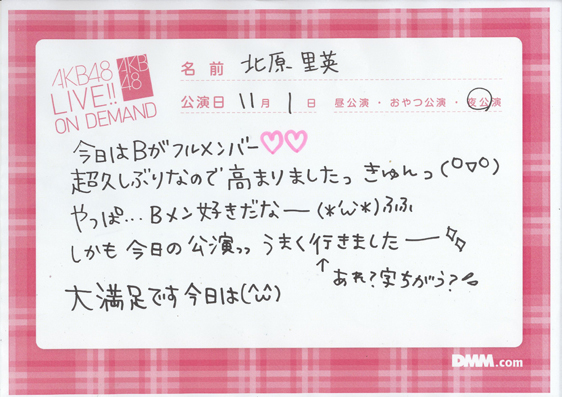 AKB48
LIVE!!
ON DEMAND
AKB
48
名前 北原里英
公演日 11月1日 昼公演・おやつ公演・夜公演
今日はBがフルメンバー♡♡
超久しぶりなので高まりましたっ きゅんっ(○▽○)
やっぱ…Bメン好きだなー(*'ω'*)ふふ
しかも今日の公演っっ うまく行きましたー✧✧
↑
あれ?字ちがう?
大満足です今日は(^ω^)
DMM.com